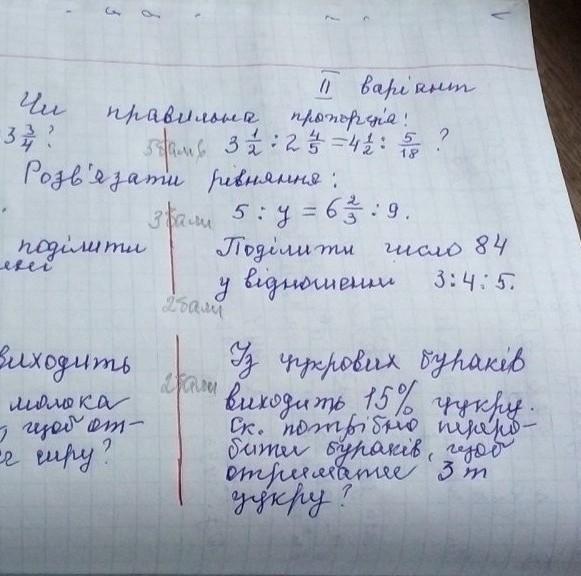 II варіант
Чи правильна пропорція:
3 3/4 ? 3 1/2 : 2 4/5 = 4 1/2 : 5/18 ?
Розв'язати рівняння:
3 бали 5 : y = 6 2/3 : 9.
поділити Поділити число 84
у відношенні 3:4:5.
2 бали
виходить Із цукрових буряків
2 бали
молока виходить 15% цукру.
щоб от- Ск. потрібно перро-
сиру? бити буряків, щоб
отримати 3 т
цукру?